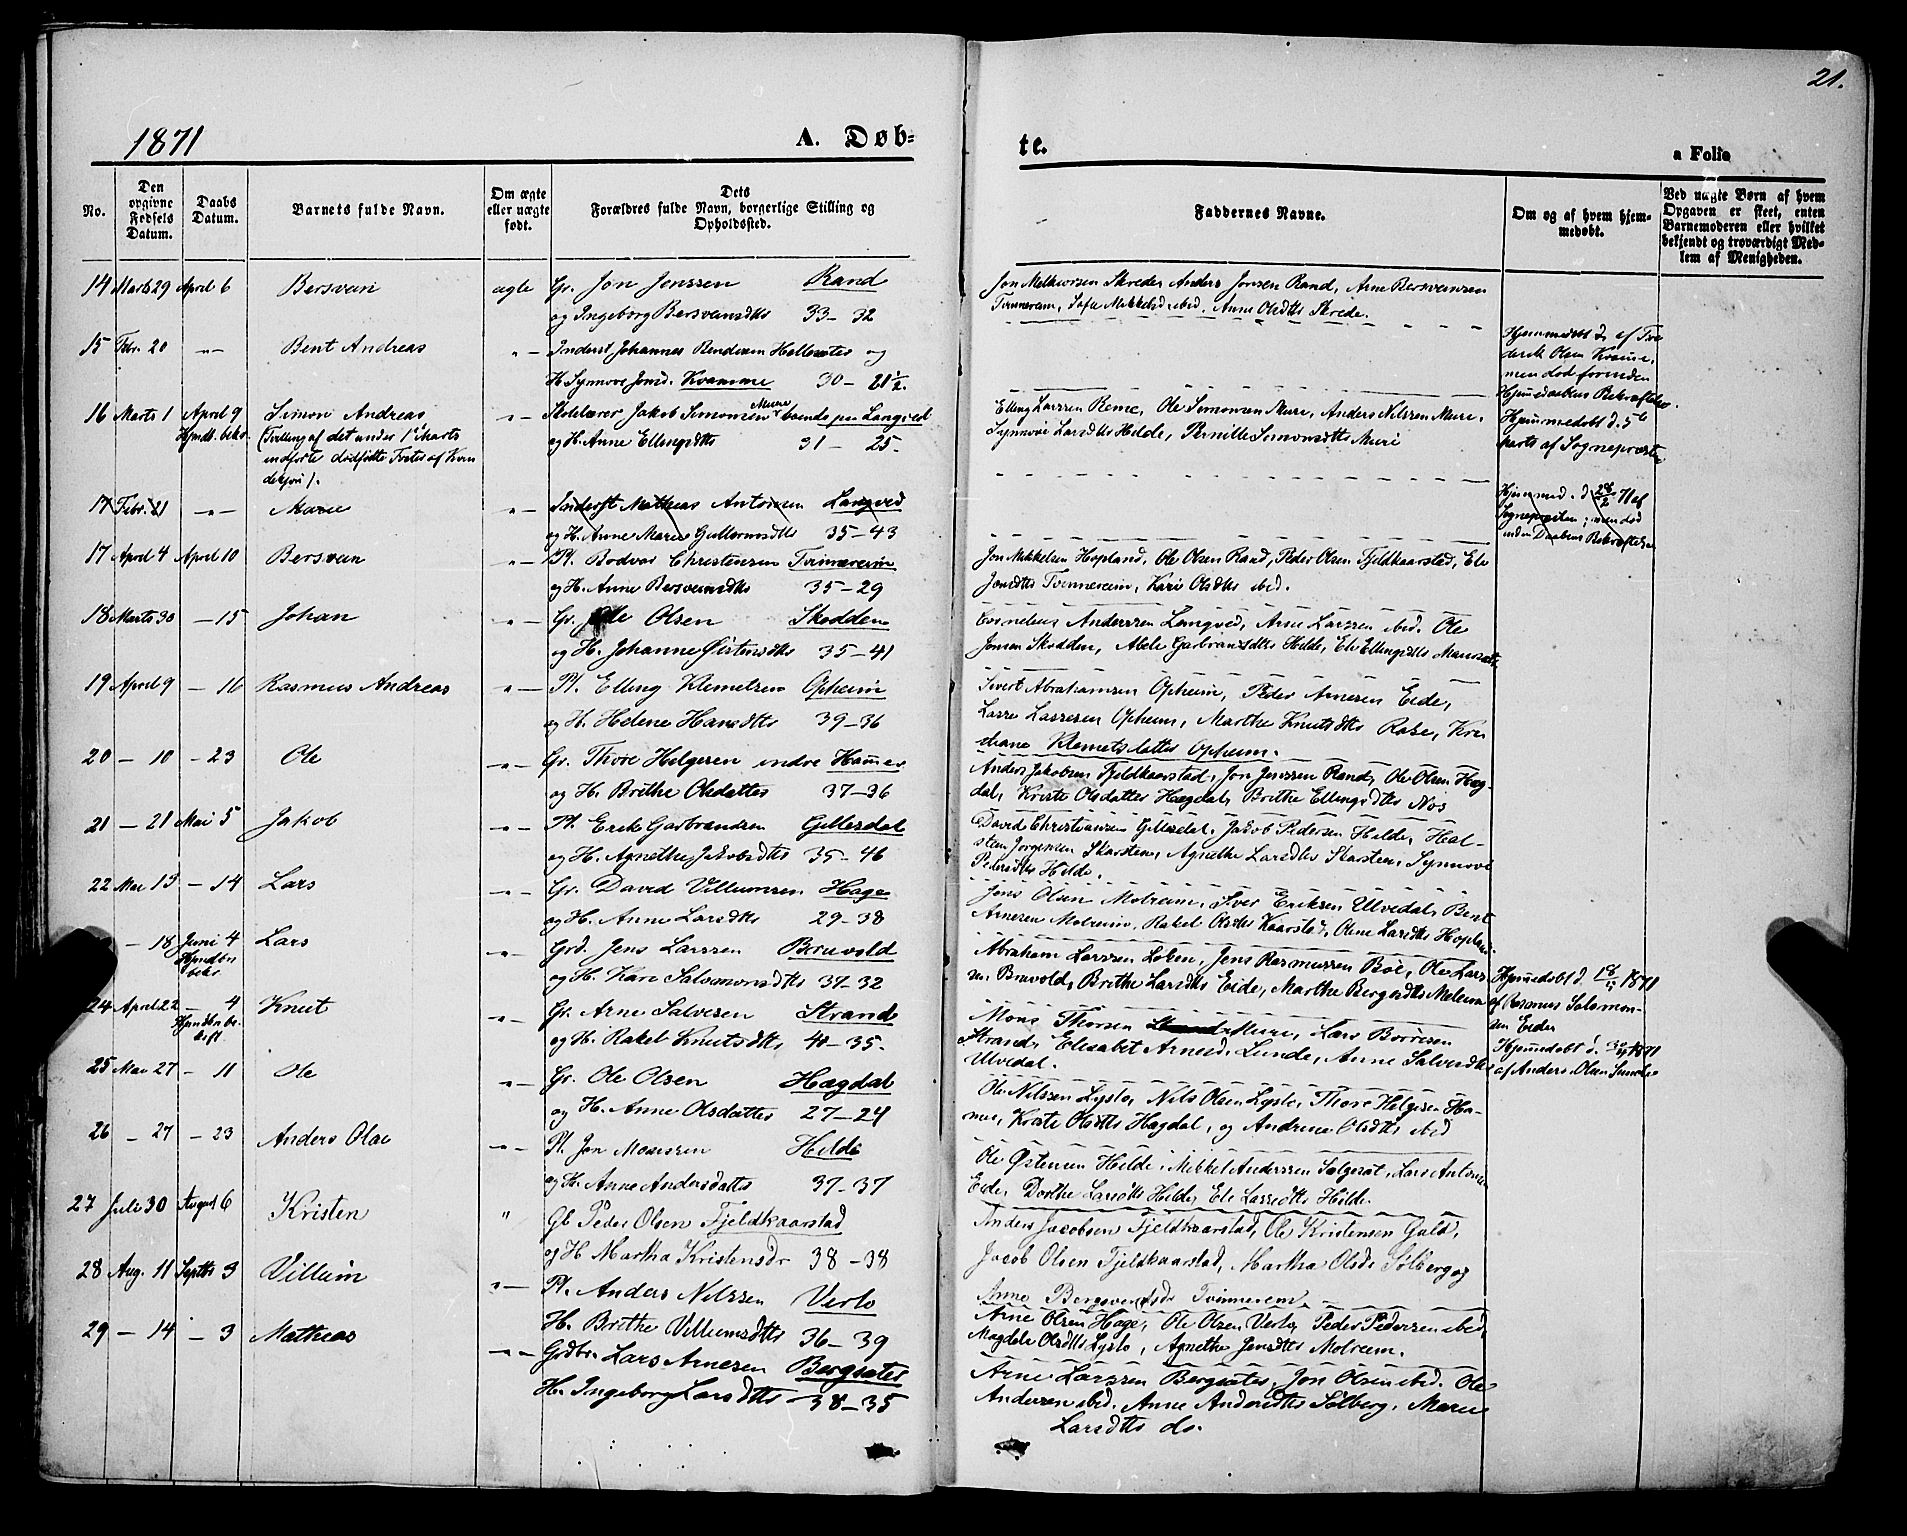 21.
1871
A. Døb-
te.
a Folio
No.
Den opgivne Fødsels Datum.
Daabs Datum.
Barnets fulde Navn.
Om ægte eller uægte født.
Dets Forældres fulde Navn, borgerlige Stilling og Opholdssted.
Faddernes Navne.
Om og af hvem hjemmedøbt.
Ved uægte Børn af hvem Opgaven er skeet, enten Barnemoderen eller hvilket bekjendt og troværdigt Medlem af Menigheden.
14 Marts 29 April 6 Bersvein ægte Gr. Jon Jenssen Rand
og Ingeborg Bersveinsdttr 33-32
Jon Melkiorsen Skrede, Anders Jonsen Rand, Arne Bersveinsen
Tvinnereim, Sofie Mikkelsd. ibid. Anne Olsdttr Skrede.
15 Febr. 20 -"- Bent Andreas "- Inderst Johannes Bendixen Hellesæter og
H. Synnøve Jonsd. Kvamme 30-21½.
Hjemmedøbt d. af Fre
derik Olsen Kvamme,
men død forinden
Hjemedaabens Bekræftelse.
16 Marts 1 April 9 Simon Andreas "- Skolelærer Jakob Simonsen Muri boende paa Langved
Hjmdb. bekr. (Tvilling af det under 1ste Marts
indførte dødfødte Foster af Kvin
dekjøn). og H. Anne Ellingsdttr 31-25.
Elling Larssen Reme, Ole Simonsen Muri, Anders Nilssen Muri,
Synnøve Larsdttr Hilde, Pernille Simonsdttr Muri
Hjemmedøbt d. 5te
Marts af Sognepræsten
17 Febr. 21 -"- Marie "- Inderst Mathias Antonsen Langved
og H. Anne Marie Guttormsdttr 35-43
Hjemmed. d. 28/2 71 af
Sognepræsten; men død
inden Daabens Bekræftelse
17 April 4 April 10 Bersvein "- Pl. Bodvar Christensen Tvinnereim
og H. Anne Bersveinsdttr 35-29
Jon Mikkelsen Hopland, Ole Olsen Rand, Peder Olsen Fjeldkaarstad, Eli
Jonsdttr Tvinnereim, Kari Olsdttr ibid.
18 Marts 30 -15 Johan "- Gr. Ole Olsen Skodden
og H. Johanne Østensdttr 35-41
Cornelius Anderssen Langved, Arne Larssen ibid. Ole
Jonsen Skodden, Abele Garbransdttr Hilde, Eli Ellingsdttr
19 April 9 -16 Rasmus Andreas "- Pl. Elling Klemetsen Opheim
og H. Helene Hansdttr 39-36
Sivert Abrahamsen Opheim, Peder Arnesen Eide,
Lasse Lassesen Opheim, Marthe Knutsdttr Rake, Kri
stiane Klemetsdatter Opheim.
20 -10 -23 Ole "- Gr. Thore Helgesen indre Hammer
og H. Brithe Olsdatter 37-36
Anders Jakobsen Fjeldkaarstad, Jon Jenssen Rand, Ole Olsen Hæg-
dal, Kirste Olsdatter Hægdal, Brithe Ellingsdttr Nos
21 -21 Mai 5 Jakob "- Pl. Erik Garbransen Gillesdal
og H. Agnethe Jakobsdttr 35-46
David Christiansen Gillesdal, Jakob Pedersen Hilde, Hal-
steen Jørgensen Skarsten, Agnethe Larsdttr Skarsten, Synnøve
Pedersdttr Hilde.
22 Mai 13 -14 Lars "- Gr. David Villumsen Hage
og H. Anne Larsdttr 29-38
Jens Olsen Molreim, Iver Eriksen Ulvedal, Bent
Arnesen Molreim, Rakel Olsdttr Kaarstad, Oline Larsdttr Hopland.
-18 Juni 4 Lars "- Grd. Jens Larssen Bruvold
Hjmdbn bekr. og H. Kari Salomonsdttr 37-32
Abraham Larssen Loken, Jens Rasmussen Bøe, Ole Lars
sen Bruvold, Brithe Larsdttr Eide, Marthe Bergesdttr Meleim
Hjemedøbt d. 1871
af Rasmus Salomon-
sen Eide
24 April 22 -4 Knut "- Gr. Arne Salvesen Strand
Hjmdbn bekr. og H. Rakel Knutsdttr 40-35.
Mons Thorsen Muri, Lars Børresen
Strand, Elisabet Arnesd. Lunde, Anne Salvesdttr
Ulvedal.
Hjemedøbt d. 1871
af Anders Olsen
25 Mai 27 -11 Ole "- Gr. Ole Olsen Hægdal
og H. Anne Olsdatter 27-24
Ole Nilssen Lyslo, Nils Olsen Lyslo, Thore Helgesen Ha-
mer, Kirste Olsdttr Hægdal, og Andrine Olsdttr ibid
26 -27 -23 Anders Olai "- Pl. Jon Monssen Hilde
og H. Anne Andersdatter 37-37
Ole Østensen Hilde, Mikkel Anderssen Sølgerøt, Lars Antonsen
Eide, Dorthe Larsdttr Hilde, Eli Larsdttr Hilde.
27 Juli 30 August 6 Kristen " Gb Peder Olsen Fjeldkaarstad
og H Martha Kristensdr 38-38
Anders Jacobsen Fjeldkaarstad, Ole Kristensen Gald,
Jacob Olsen Fjeldkaarstad, Martha Olsdr Sølberg og
Anne Bergsveinsdr Tvinnereim.
28 Aug. 11 Septbr 3 Villum "- Pl. Anders Nilssen Verlo
H. Brithe Villumsdttr 36-39
Arne Olsen Hage, Ole Olsen Verlo, Peder Pedersen ibid,
Magdeli Olsdttr Lyslo, Agnethe Jensdttr Molreim.
29 -14 -3 Mathias "- Grdbr. Lars Arnesen Bergsæter
H. Ingeborg Larsdttr 38-35
Arne Larssen Bergsæter, Jon Olsen ibid. Ole
Andersen ibid. Anne Andersdttr Sølberg, Maren
Larsdttr do.